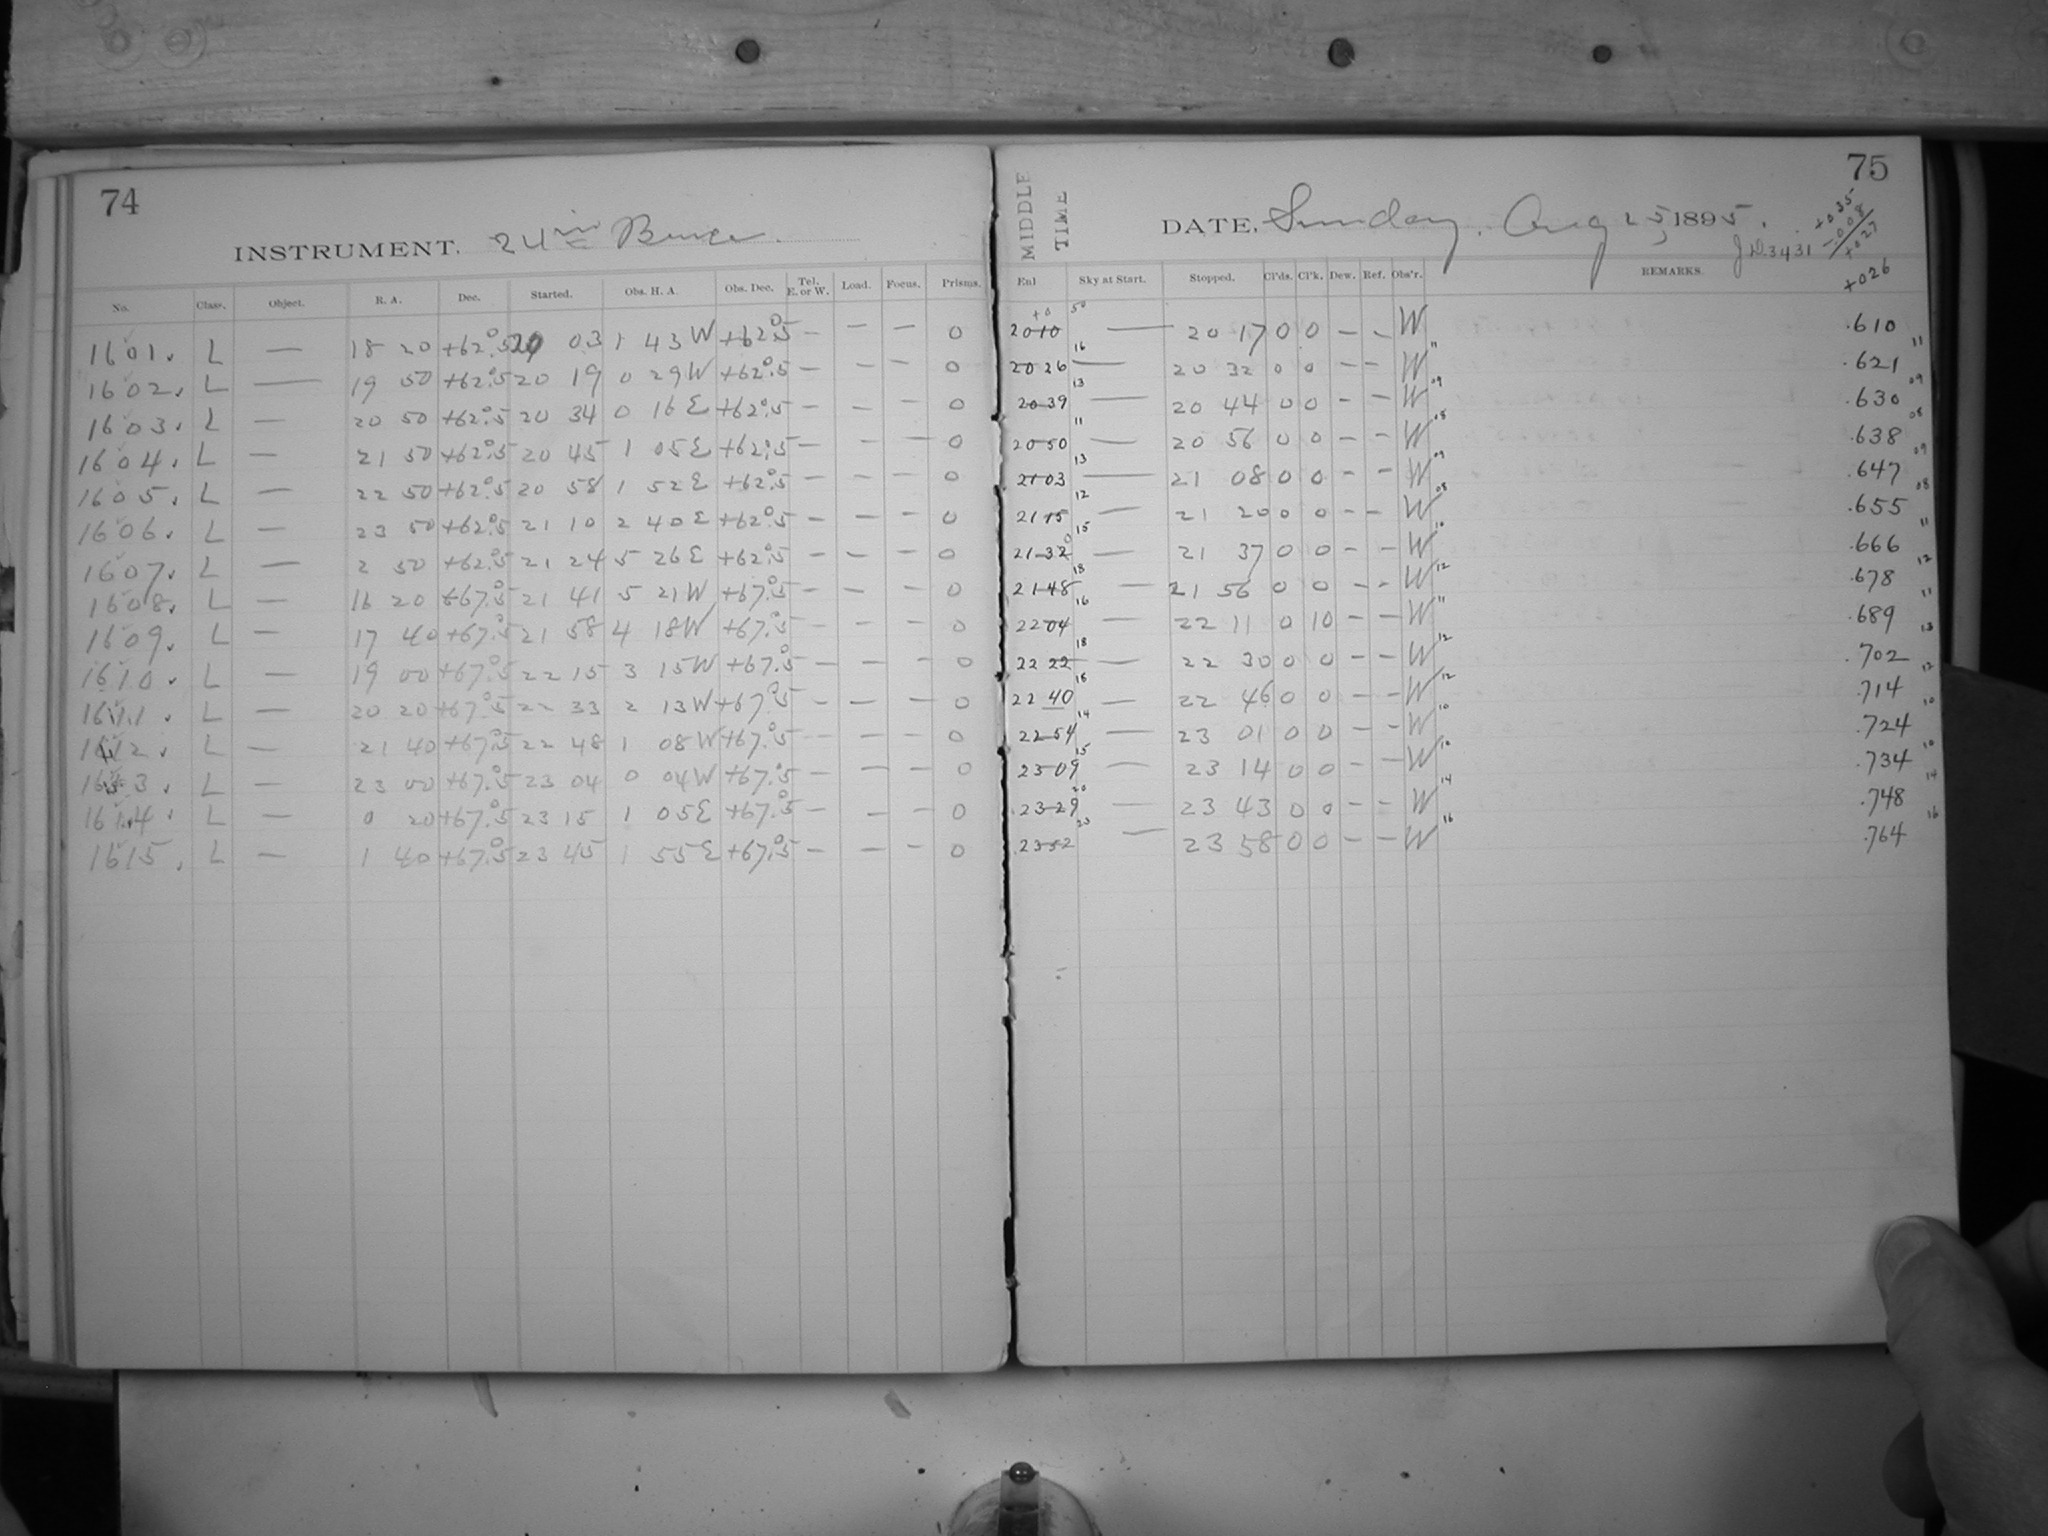 74
INSTRUMENT. 24 in Bruce.
No. Class. Object. R. A. Dec. Started. Obs. H. A. Obs. Dec. Tel. E. or W. Load. Focus. Prisms.
1601. L — 18 20 +62°.5 20 03 1 43 W +62°.5 — — — 0
1602. L — 19 50 +62°.5 20 19 0 29 W +62°.5 — — — 0
1603. L — 20 50 +62°.5 20 34 0 16 E +62°.5 — — — 0
1604. L — 21 50 +62°.5 20 45 1 05 E +62°.5 — — — 0
1605. L — 22 50 +62°.5 20 58 1 52 E +62°.5 — — — 0
1606. L — 23 50 +62°.5 21 10 2 40 E +62°.5 — — — 0
1607. L — 2 50 +62°.5 21 24 5 26 E +62°.5 — — — 0
1608. L — 16 20 +67°.5 21 41 5 21 W +67°.5 — — — 0
1609. L — 17 40 +67°.5 21 58 4 18 W +67°.5 — — — 0
1610. L — 19 00 +67°.5 22 15 3 15 W +67°.5 — — — 0
1611. L — 20 20 +67°.5 22 33 2 13 W +67°.5 — — — 0
1612. L — 21 40 +67°.5 22 48 1 08 W +67°.5 — — — 0
1613. L — 23 00 +67°.5 23 04 0 04 W +67°.5 — — — 0
1614. L — 0 20 +67°.5 23 15 1 05 E +67°.5 — — — 0
1615. L — 1 40 +67°.5 23 45 1 55 E +67°.5 — — — 0
75
MIDDLE TIME
DATE, Sunday, Aug 25, 1895.
J.D. 3431
+035
-008
+027
+026
Sky at Start. Stopped. Cl'ds. Cl'k. Dew. Ref. Obs'r. REMARKS.
20 10 — 20 17 0 0 — — W .610
16 11 11
20 26 — 20 32 0 0 — — W .621
13 09 09
20 39 — 20 44 0 0 — — W .630
11 08 08
20 50 — 20 56 0 0 — — W .638
13 09 09
21 03 — 21 08 0 0 — — W .647
12 08 08
21 15 — 21 20 0 0 — — W .655
15 10 11
21 32 — 21 37 0 0 — — W .666
18 12 12
21 48 — 21 56 0 0 — — W .678
16 11 11
22 04 — 22 11 0 10 — — W .689
18 12 13
22 22 — 22 30 0 0 — — W .702
18 12 12
22 40 — 22 46 0 0 — — W .714
14 10 10
22 54 — 23 01 0 0 — — W .724
15 10 10
23 09 — 23 14 0 0 — — W .734
20 14 14
23 29 — 23 43 0 0 — — W .748
23 16 16
23 52 — 23 58 0 0 — — W .764